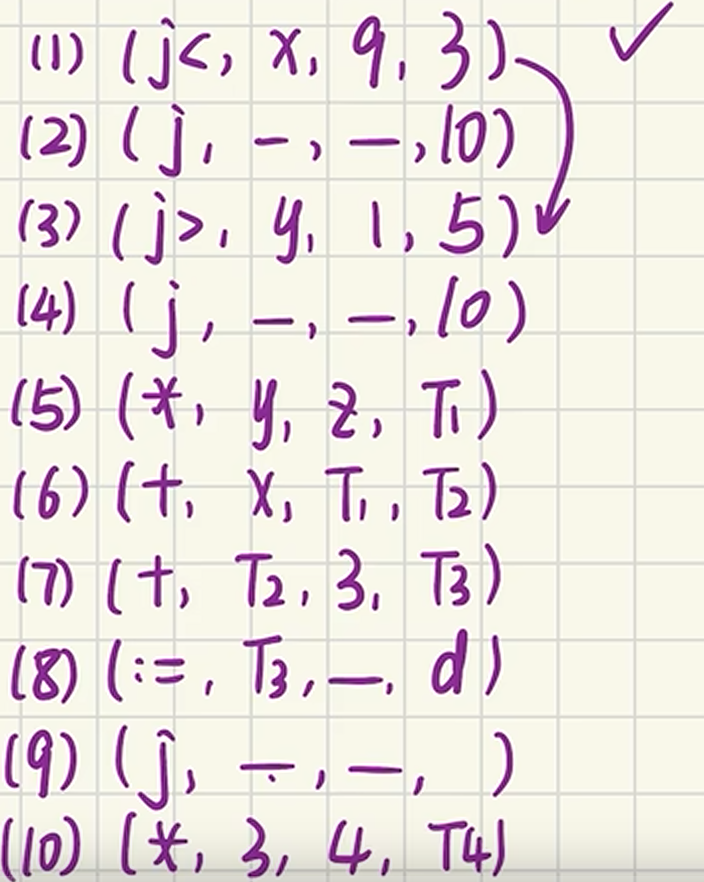 (1) (j<, x, 9, 3) ✓
(2) (j, -, -, 10)
(3) (j>, y, 1, 5)
(4) (j, -, -, 10)
(5) (*, y, z, T₁)
(6) (+, x, T₁, T₂)
(7) (+, T₂, 3, T₃)
(8) (:=, T₃, -, d)
(9) (j, -, -, )
(10) (*, 3, 4, T4)